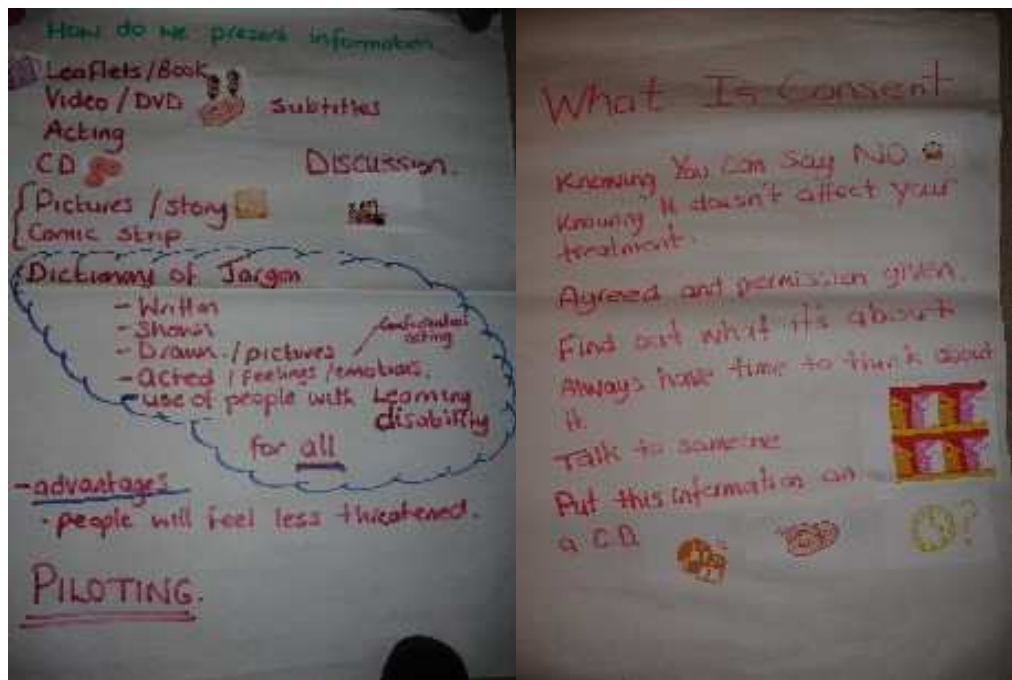 How do we present information
Leaflets/Book
Video / DVD
Subtitles
Acting
CD
DISCUSSION.
Pictures / story
Comic strip
Dictionary of Jargon
- Written
- Shown
- Drawn / pictures
acting
- acted / feelings / emotions.
- use of people with Learning
disability
for all
- advantages
- people will feel less threatened.
PILOTING.
What Is Consent
Knowing You can say NO
Knowing it doesn't affect your
treatment.
Agreed and permission given.
Find out what it's about
Always have time to think about
it.
Talk to someone
Put this information on
a C.D.
?